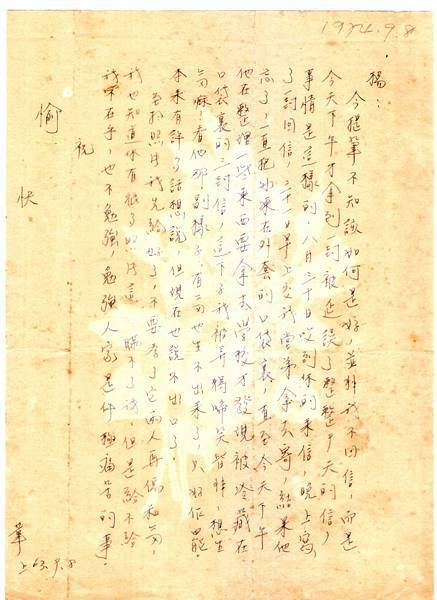 1974.9.8
楊：
今提筆不知該如何是好，並非我不回信，而是
今天下午才拿到一封被延誤了整整 天的信，
事情是這樣的，八月三十日收到你的來信，晚上寫
了一封回信，三十一日早上交給堂弟拿去寄，結果他
忘了，一直把 在外套的口袋裏，直至今天下午
他在整理一些東西要拿去學校才發現被冷藏在
口袋裏的一封信，這下子我被弄得啼笑皆非，想生
氣嘛！看他那副樣子，有氣也生不出來了，只好作罷。
本來有許多話想說，但現在也說不出口了。
至於照片我先給 了，不要為了它兩人再傷和氣，
我也知道你有很多照片這 騙不了我，但是給不給
我不在乎，也不勉強，勉強人家是件極痛苦的事。
祝
愉
快
筆
上63.9.8